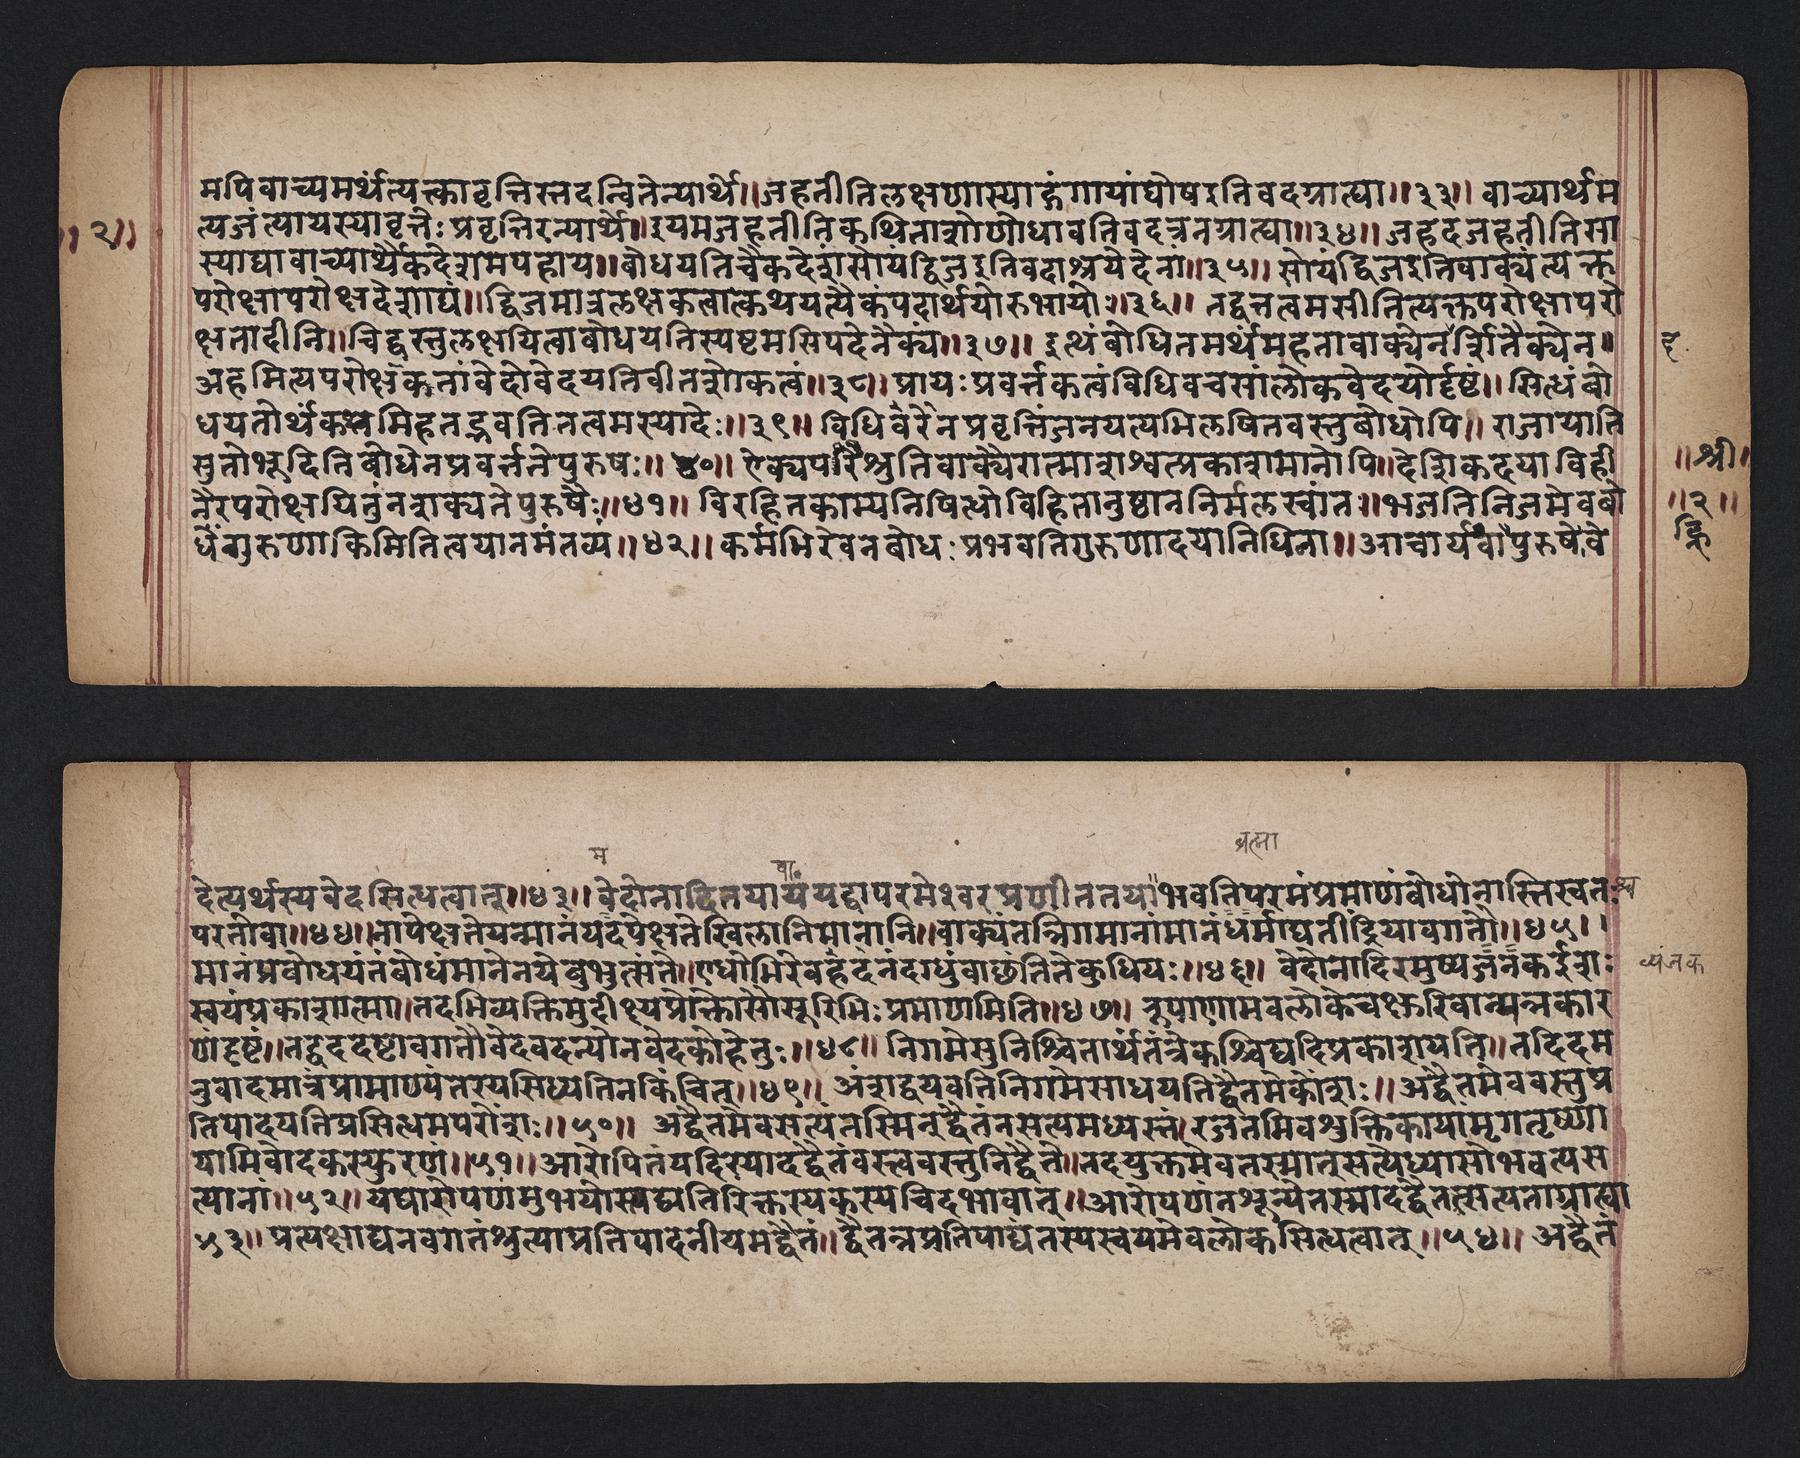 मपिवाच्यमर्थंत्यक्त्कावृत्तिस्तदन्वितेन्यार्थे॥जहतीतिलक्षणास्याद्गंगायांघोषइतिवदग्राह्या॥३३॥ वाच्यार्थम
॥२॥
त्यजंत्यायस्यावृत्तेः प्रवृत्तिरन्यार्थे॥इयमजहतीतिकथिताशोणोधावतिवदत्रनग्राह्या॥३४॥ जहदजहतीतिसा
स्याद्यावाच्यार्थैकदेशमपहाय॥बोधयतिचैकदेशंसोयंद्विजइतिवदाश्रयेदेनां॥३५॥ सोयंद्विजइतिवाक्यंत्यक्त
परोक्षापरोक्षदेशाद्यं॥द्विजमात्रलक्षकत्वात्कथयत्यैकंपदार्थयोरुभयोः॥३६॥ तद्वत्तत्वमसीतित्यक्तपरोक्षापरो
क्षतादीनि॥चिद्वस्तुलक्षयित्वाबोधयतिस्पष्टमसिपदेनैक्यं॥३७॥ इत्थंबोधितमर्थंमहतावाक्येनर्शितैक्येन॥
द
अहमित्यपरोक्षकतांवेदोवेदयतिवीतशोकत्वं॥३८॥ प्रायःप्रवर्त्तकत्वंविधिवचसांलोकवेदयोर्दृष्टं॥सित्धंबो
धयतोर्थंकथमिहतद्भवतितत्वमस्यादेः॥३९॥ विधिवरेनप्रवृत्तिंजनयत्यभिलषितवस्तुबोधोपि॥ राजायाति
सुतोभूदितिबोधेनप्रवर्त्ततेपुरुषः॥४०॥ ऐक्येपरैश्रुतिवाक्यैरात्माशश्वत्प्रकाशमानोपि॥देशिकदयाविही
॥श्री॥
नैरपरोक्षयितुंनशक्यतेपुरुषैः॥४१॥ विरहितकाम्यनिषित्धोविहितानुष्ठाननिर्मलस्वांतः॥भजतिनिजमेवबो
॥२॥
धंगुरुणाकिमितित्वयानमंतव्यं॥४२॥ कर्मभिरेवनबोधःप्रभवतिगुरुणादयानिधिना॥आचार्यवापुरुषोवे
देत्यर्थस्यवेदसित्धत्वात्॥४३॥ वेदोनादितयायंयद्वापरमेश्वरप्रणीततया॥भवतिपरमंप्रमाणंबोधोनास्तिस्वत
म
वा
ब्रह्मा
श्च
परतोवा॥४४॥नापेक्षतेयन्मानंयदपेक्षतेखिलानिमानानि॥वाक्यंतन्निगमानांमानंधर्माद्यतींद्रियावगतौ॥४५॥
मानंप्रबोधयंतंबोधंमानेनयेबुभुत्संते॥एधोभिरेवहंदनंदग्धुंवाछंतितेकुधियः॥४६॥ वेदोनादिरमुष्यजनकईशः
व्यंजक
स्वयंप्रकाशात्मा॥तदभिव्यक्तिमुदीक्ष्यप्रोक्तोसौसूरिभिःप्रमाणमिति॥४७॥ रूपाणामवलोकेचक्षुरिवान्यन्नकार
णंदृष्टं॥तद्वददष्टावगतौवेदवदन्योनवेदकोहेतुः॥४८॥ निगमेसुनिश्चितार्थंतंत्रेकश्चिद्यदिप्रकाशयति॥तदिदम
नुवादमात्रंप्रामाण्यंतस्यसिध्यतिनकिंचित्॥४९॥ अंशद्वयवतिनिगमेसाधयतिद्वैतमेकोंशः॥अद्वैतमेववस्तुप्र
तिपादयतिप्रसित्धमपरोंशः॥५०॥ अद्वैतमेवसत्यंतस्मिन्द्वैतंनसत्यमध्यस्तं।रजतमिवशुक्तिकायांमृगतृष्णा
यामिवोदकस्फुरणं॥५१॥आरोपितंयदिस्यादद्वैतंवस्त्ववस्तुनिद्वैते॥तदयुक्तमेवतस्मात्सत्येध्यासोभवत्यस
त्यानां॥५२॥यद्यारोपणमुभयोस्तद्व्यतिरिक्तस्यकस्यचिदभावात्॥आरोपणंनशून्येतस्मादद्वैतसत्यताग्राह्या
५३॥प्रत्यक्षाद्यनवगतंश्रुत्याप्रतिपादनीयमद्वैतं॥द्वैतन्नप्रतिपाद्यंतस्यस्वयमेवलोकसित्धत्वात्॥५४॥ अद्वैतं